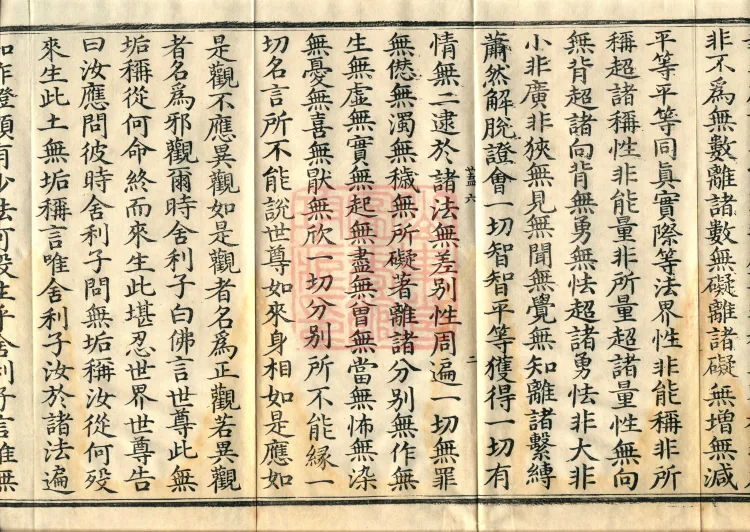 非不為無數離諸數無礙離諸礙無增無減
平等平等同眞實際等法界性非能稱非所
稱超諸稱性非能量非所量超諸量性無向
無背超諸向背無勇無怯超諸勇怯非大非
小非廣非狹無見無聞無覺無知離諸繫縛
蕭然解脫證會一切智智平等獲得一切有
蓋六 二
情無二逮於諸法無差別性周遍一切無罪
無愆無濁無穢無所礙著離諸分別無作無
生無虛無實無起無盡無曾無當無怖無染
無憂無喜無猒無欣一切分別所不能緣一
切名言所不能說世尊如來身相如是應如
是觀不應異觀如是觀者名為正觀若異觀
者名為邪觀爾時舍利子白佛言世尊此無
垢稱從何命終而來生此堪忍世界世尊告
曰汝應問彼時舍利子問無垢稱汝從何歿
來生此土無垢稱言唯舍利子汝於諸法遍